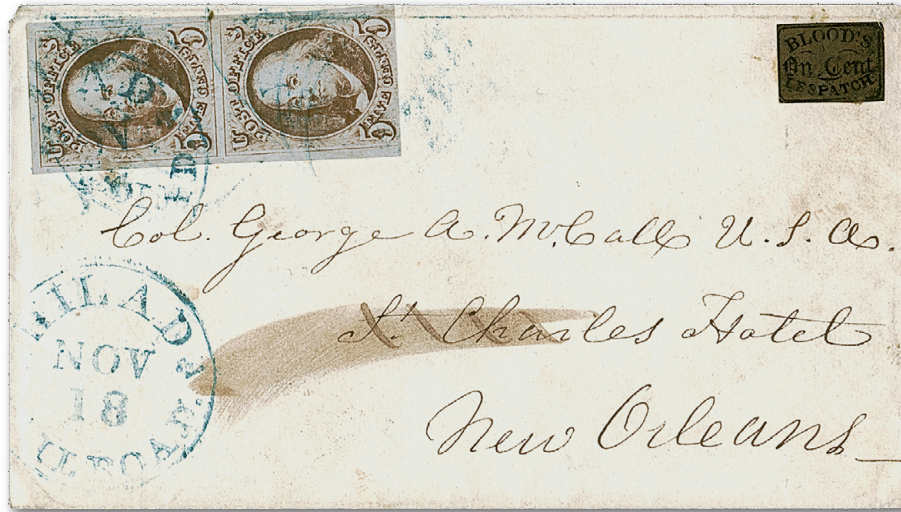 POST OFFICE
FIVE CENTS
POST OFFICE
FIVE CENTS
BLOOD'S
One Cent
DESPATCH
Col. George A. McCall U. S. A.
St. Charles Hotel
New Orleans
NOV
18